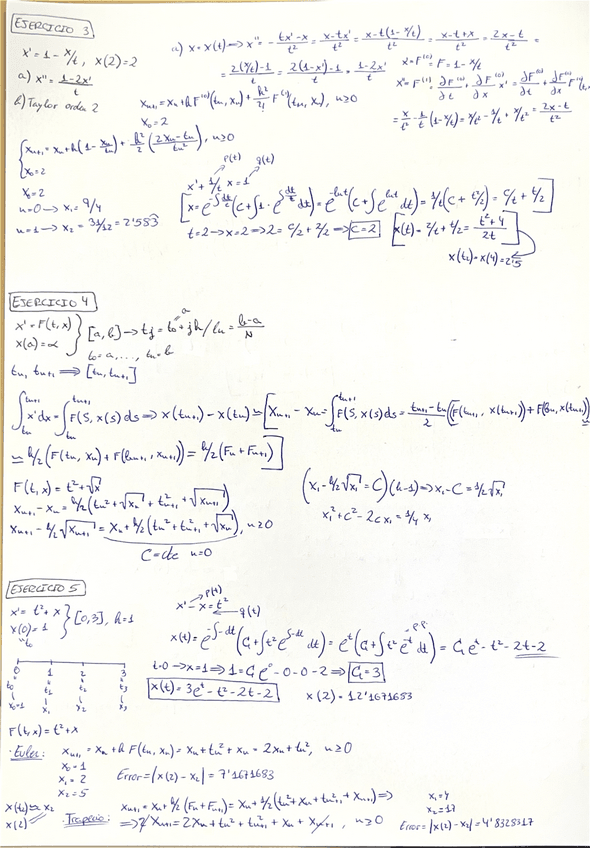 EJERCICIO 3
x' = 1 - x/t, x(2)=2
a) x'' = (1-2x')/t
b) Taylor orden 2
a) x = x(t) → x'' = -(tx'-x)/t² = (x-tx')/t² = (x-t(1-x/t))/t² = (x-t+x)/t² = (2x-t)/t² =
= (2(x/t)-1)/t = (2(1-x')-1)/t = (1-2x')/t
x_{n+1} = x_n + h F^{(0)}(t_n, x_n) + h²/2! F^{(1)}(t_n, x_n), n≥0
x_0 = 2
x' = F^{(0)} = F = 1 - x/t
x'' = F^{(1)} = ∂F^{(0)}/∂t + ∂F^{(0)}/∂x x' = ∂F^{(0)}/∂t + ∂F^{(0)}/∂x F
= x/t² - 1/t (1-x/t) = x/t² - 1/t + x/t² = (2x-t)/t²
{ x_{n+1} = x_n + h(1 - x_n/t_n) + h²/2 ((2x_n-t_n)/t_n²), n≥0
x_0=2
x_0=2
n=0 → x_1 = 9/4
n=1 → x_2 = 31/12 = 2'583
p(t) q(t)
x' + 1/t x = 1
[x = e^{-∫dt/t}(C+∫1·e^{∫dt/t}dt) = e^{-ln t}(C+∫e^{ln t}dt) = 1/t(C + t²/2) = C/t + t/2]
t=2 → x=2 ⇒ 2 = C/2 + 2/2 ⇒ C=2
[x(t) = 2/t + t/2 = (t²+4)/2t]
x(t_2) = x(4) = 2'5
EJERCICIO 4
x' = F(t, x)
x(a) = α } [a, b] → t_j = t_0 + jh / h = (b-a)/N
t_0 = a, ..., t_n = b
t_n, t_{n+1} ⟹ [t_n, t_{n+1}]
∫_{t_n}^{t_{n+1}} x'dx = ∫_{t_n}^{t_{n+1}} F(s, x(s)) ds ⇒ x(t_{n+1}) - x(t_n) ≃ [x_{n+1} - x_n = ∫_{t_n}^{t_{n+1}} F(s, x(s)) ds = (t_{n+1}-t_n)/2 (F(t_{n+1}, x(t_{n+1})) + F(t_n, x(t_n))) ≃
≃ h/2 (F(t_n, x_n) + F(t_{n+1}, x_{n+1})) = h/2 (F_n + F_{n+1})]
F(t, x) = t² + √x
x_{n+1} - x_n = h/2 (t_n² + √x_n + t²_{n+1} + √x_{n+1})
x_{n+1} - h/2 √x_{n+1} = x_n + h/2 (t_n² + t²_{n+1} + √x_n), n≥0
C = cte n=0
(x_1 - h/2 √x_1 = C) (h=1) ⇒ x_1 - C = 1/2 √x_1
x_1² + C² - 2Cx_1 = 1/4 x_1
EJERCICIO 5
x' = t² + x
x(0) = 1 } [0,3], h=1
t_0
0 1 2 3
t_0 t_1 t_2 t_3
x_0=1 x_1 x_2 x_3
p(t)
x' - x = t²
q(t)
x(t) = e^{-∫-dt}(C_1+∫t²e^{∫-dt} dt) = e^t(C_1+∫t²e^{-t}dt) = C_1e^t - t² - 2t - 2
t=0 → x=1 ⇒ 1 = C_1e^0 - 0 - 0 - 2 ⇒ C_1=3
x(t) = 3e^t - t² - 2t - 2
x(2) = 12'1671683
F(t, x) = t² + x
· Euler: x_{n+1} = x_n + h F(t_n, x_n) = x_n + t_n² + x_n = 2x_n + t_n², n≥0
x_0 = 1
x_1 = 2 Error = |x(2) - x_2| = 7'1671683
x_2 = 5
x(t_2) ≃ x_2
x(2)
· Trapecio: x_{n+1} = x_n + h/2 (F_n + F_{n+1}) = x_n + 1/2 (t_n² + x_n + t²_{n+1} + x_{n+1}) ⇒
⇒ 2x_{n+1} = 2x_n + t_n² + t²_{n+1} + x_n + x_{n+1}, n≥0
x_1 = 4
x_2 = 17
Error = |x(2) - x_2| = 4'8328317